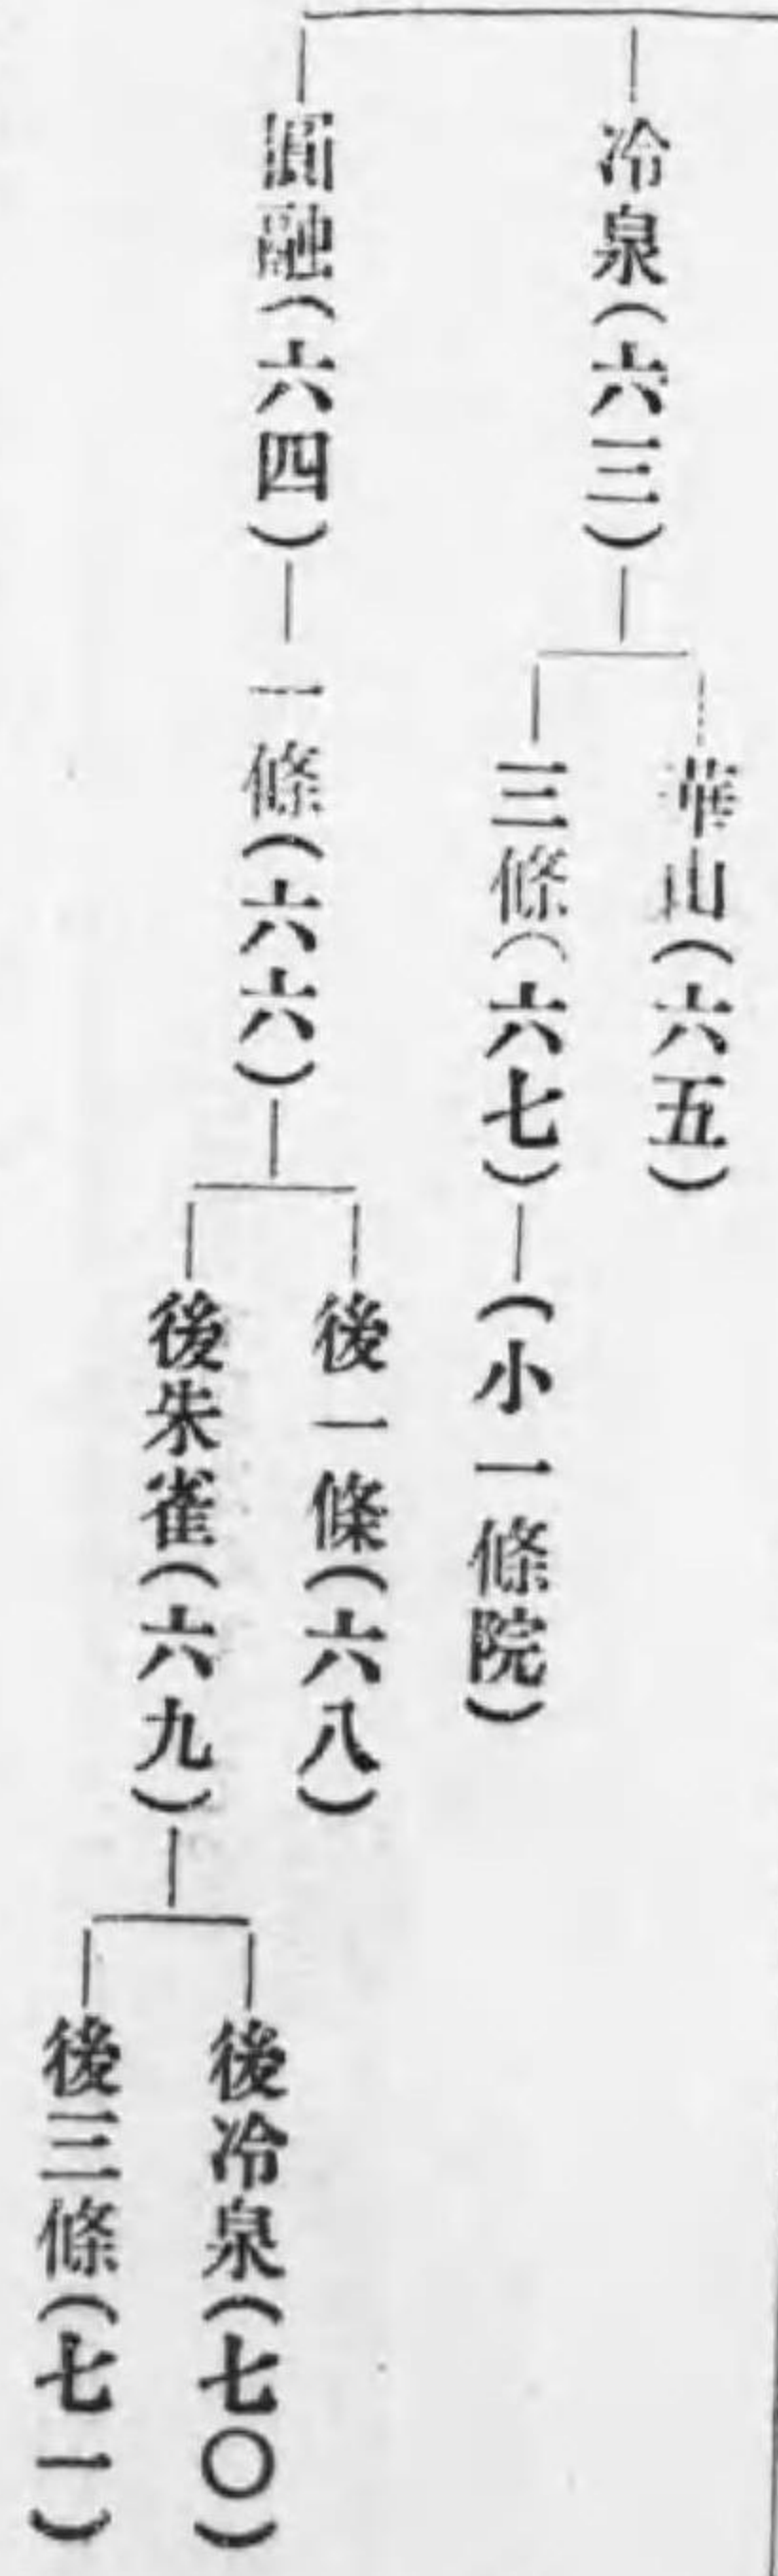 冷泉(六三)
華山(六五)
三條(六七)
(小一條院)
圓融(六四)
一條(六六)
後一條(六八)
後朱雀(六九)
後冷泉(七〇)
後三條(七一)